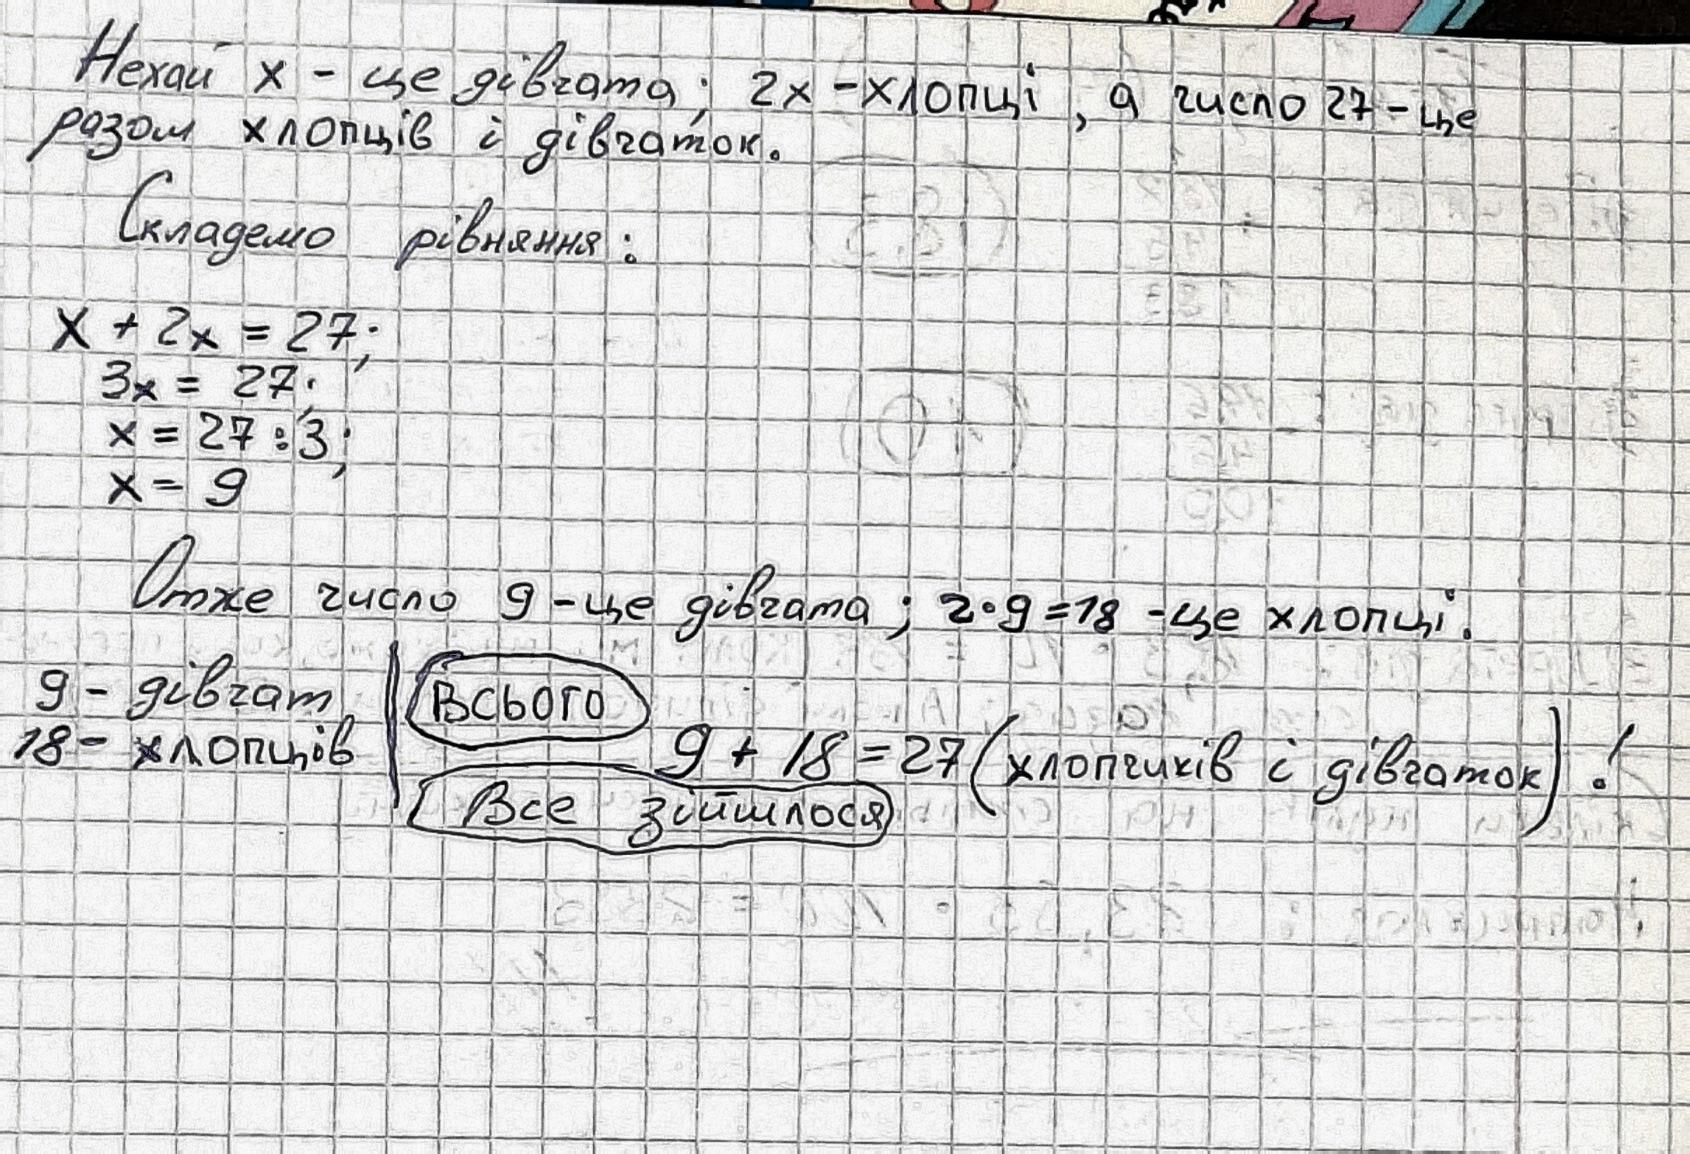 Нехай x - це дівчата; 2x - хлопці, а число 27 - це
разом хлопців і дівчаток.
Складемо рівняння:
x + 2x = 27;
3x = 27;
x = 27 : 3;
x = 9
Отже число 9 - це дівчата; 2 • 9 = 18 - це хлопці.
9 - дівчат
Всього
18 - хлопців
9 + 18 = 27 (хлопчиків і дівчаток)!
Все зійшлося